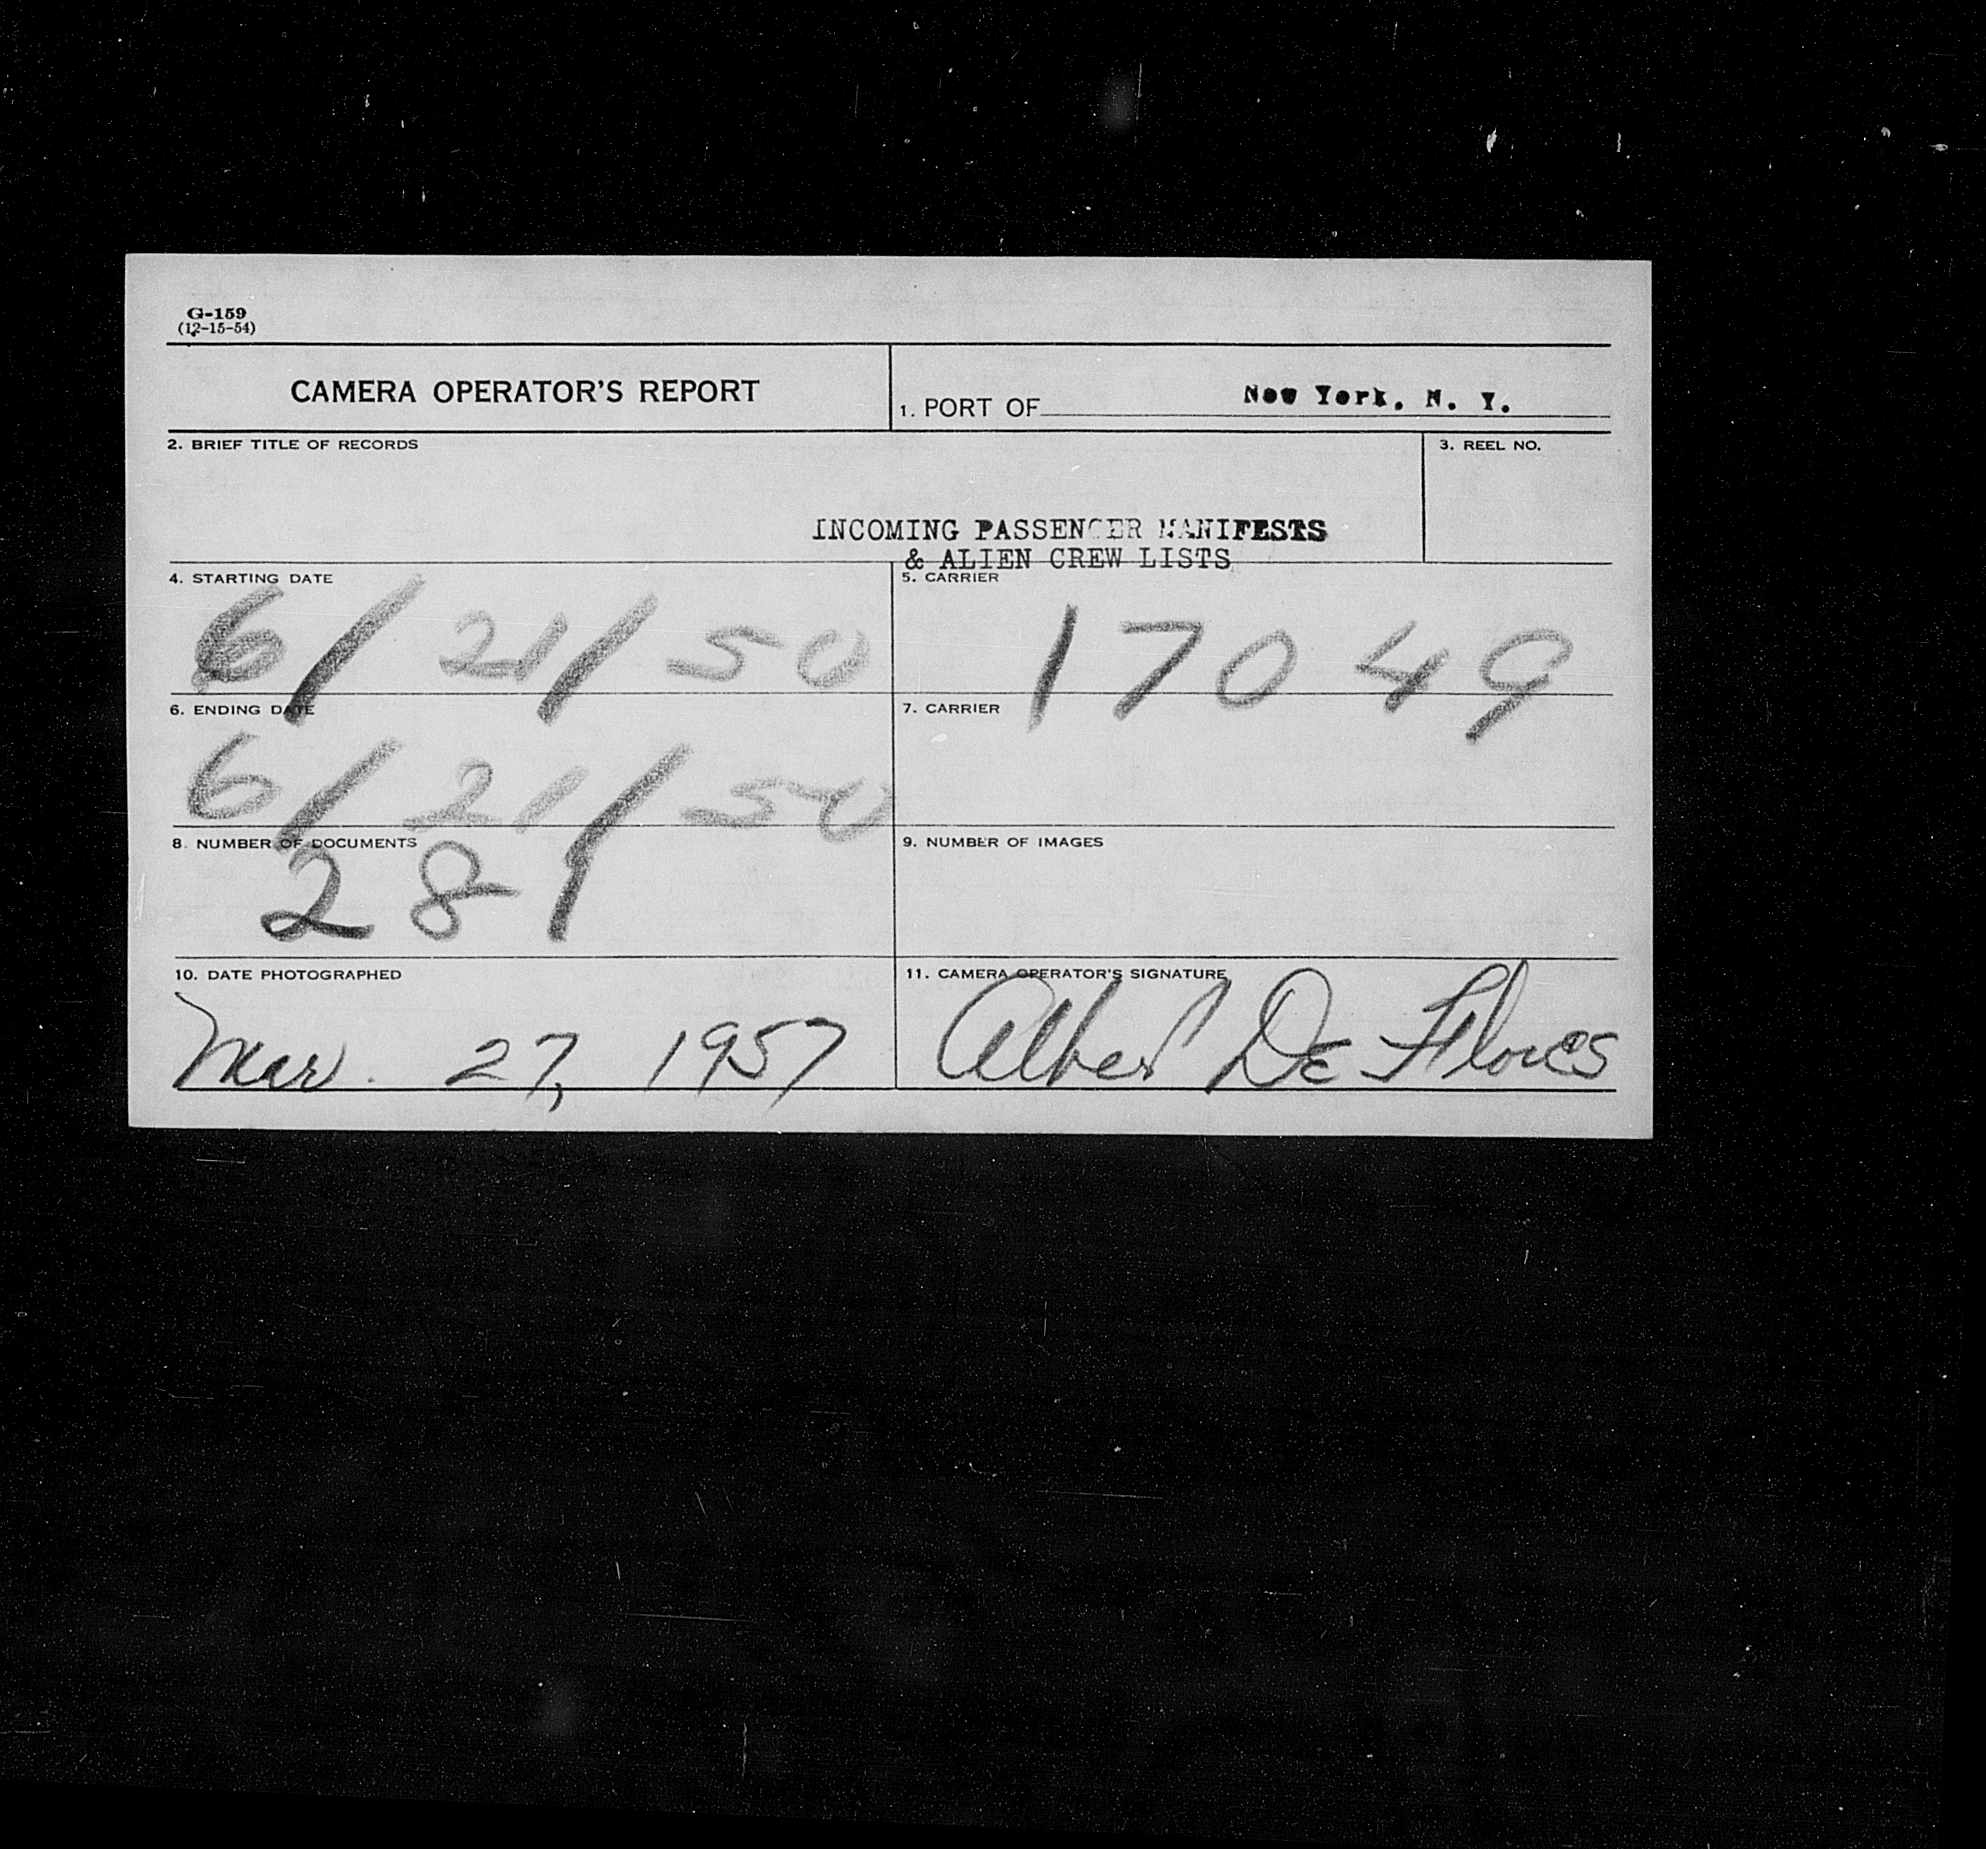 G-159
(12-15-54)
CAMERA OPERATOR'S REPORT
1. PORT OF New York, N. Y.
2. BRIEF TITLE OF RECORDS
3. REEL NO.
INCOMING PASSENGER MANIFESTS
& ALIEN CREW LISTS
4. STARTING DATE
6/21/50
5. CARRIER
17049
6. ENDING DATE
6/21/50
7. CARRIER
8. NUMBER OF DOCUMENTS
281
9. NUMBER OF IMAGES
10. DATE PHOTOGRAPHED
Mar. 27, 1957
11. CAMERA OPERATOR'S SIGNATURE
Albert De Flores